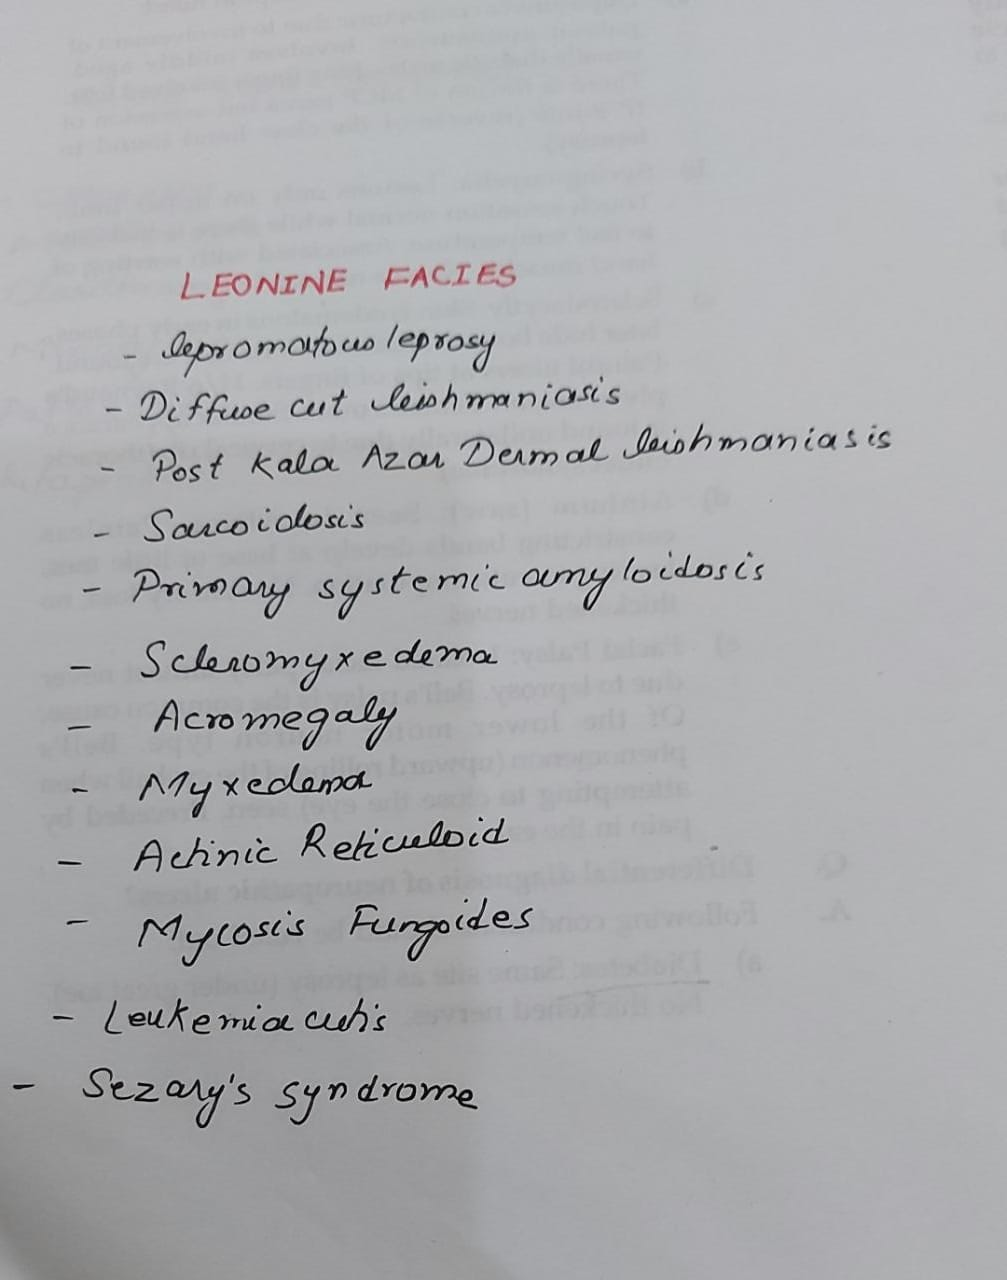 LEONINE FACIES
- lepromatous leprosy
- Diffuse cut leishmaniasis
- Post Kala Azar Dermal leishmaniasis
- Sarcoidosis
- Primary systemic amyloidosis
- Scleromyxedema
- Acromegaly
- Myxedema
- Actinic Reticuloid
- Mycosis Fungoides
- Leukemia cutis
- Sezary's syndrome